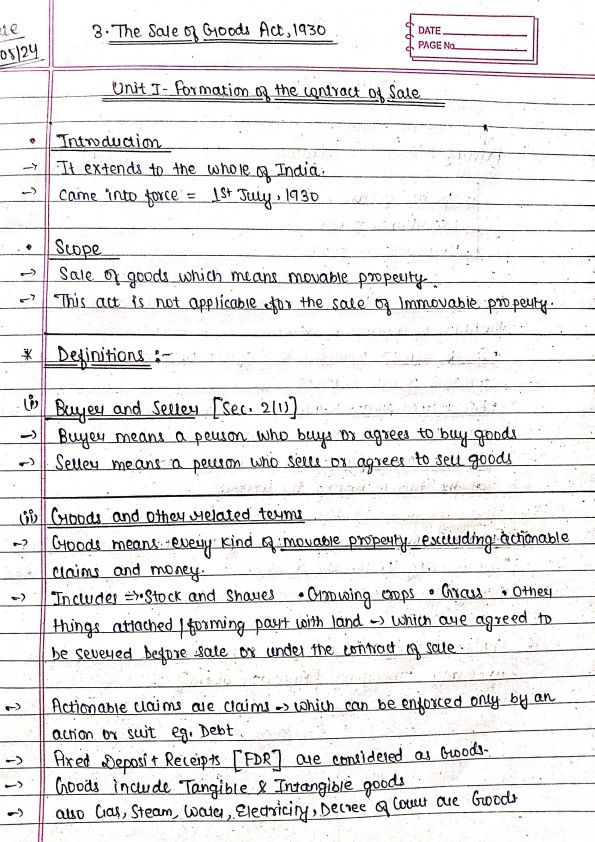 3. The Sale of Goods Act, 1930
DATE
PAGE No.
05/24
Unit I - Formation of the contract of Sale
• Introduction
→ It extends to the whole of India.
→ Came into force = 1st July, 1930
• Scope
→ Sale of goods which means movable property.
→ This act is not applicable for the sale of Immovable property.
* Definitions :-
(i) Buyer and Seller [Sec. 2(1)]
→ Buyer means a person who buys or agrees to buy goods
→ Seller means a person who sells or agrees to sell goods
(ii) Goods and other related terms
→ Goods means every kind of movable property excluding actionable
claims and money.
→ Includes ⇒ • Stock and Shares • Growing crops • Grass • Other
things attached / forming part with land → which are agreed to
be severed before sale or under the contract of sale.
→ Actionable claims are claims → which can be enforced only by an
action or suit eg. Debt.
→ Fixed Deposit Receipts [FDR] are considered as Goods-
→ Goods include Tangible & Intangible goods
→ also Gas, Steam, Water, Electricity, Decree of Court are Goods